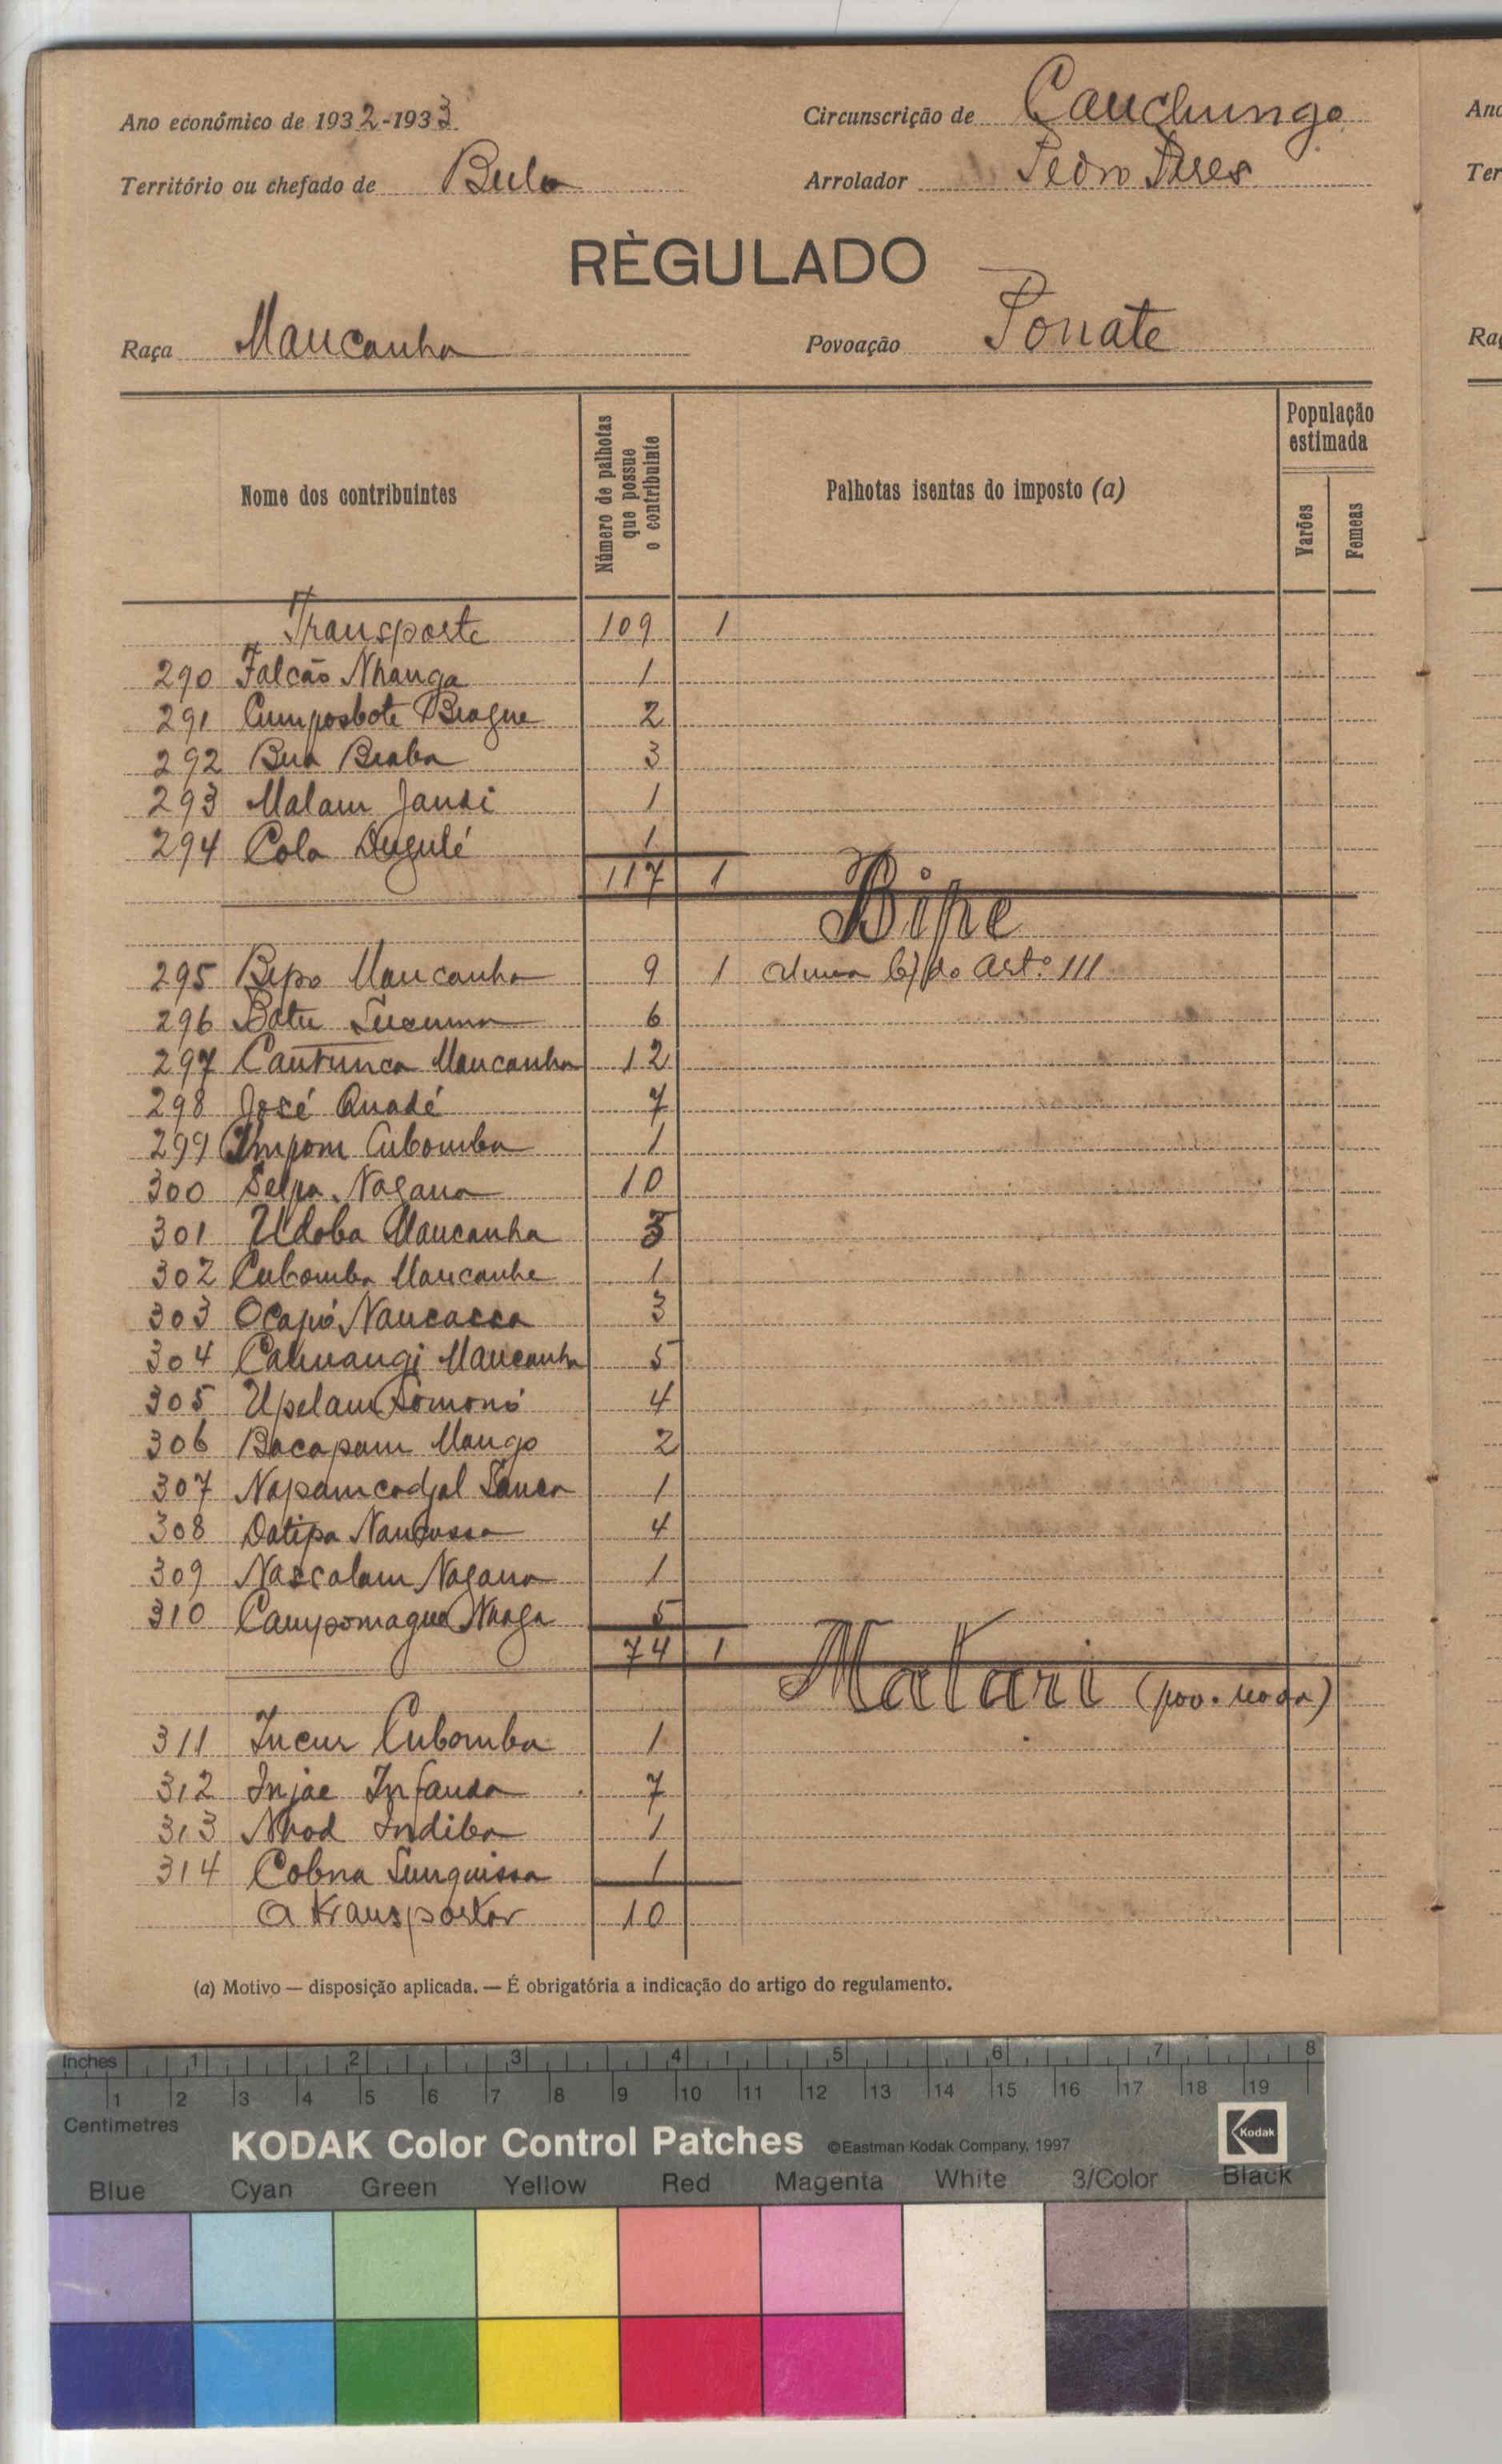 Ano económico de 1932-1933
Circunscrição de Cauchungo
Território ou chefado de Bula
Arrolador Pedro Pires
RÈGULADO
Raça Mancanha
Povoação Ponate
Nome dos contribuintes
Número de palhotas que possue o contribuinte
Palhotas isentas do imposto (a)
População estimada
Varões
Femeas
Transporte 109 1
290 Falcão Nhanga 1
291 Cumposbote Biague 2
292 Bua Biaba 3
293 Malam Jandi 1
294 Cola Dugulé 1
117 1
Bipe
295 Bipo Mancanha 9 1 alinea b) do Artº 111
296 Batu 6
297 Mancanha 12
298 José Quadé 7
299 Umpom Cubomba 1
300 Selpa Nagana 10
301 Udoba Mancanha 5
302 Cubomba Mancanha 1
303 Ocapó Nancassa 3
304 Mancanha 5
305 Upelam Somonó 4
306 Bacapam Mango 2
307 Napamcadjal Sanca 1
308 Datipa Nancassa 4
309 Nascalam Nagana 1
310 Campomague Nhaga 5
74 1
Matari (pov. nova)
311 Incur Cubomba 1
312 Injae Infanda 7
313 Nhod Indiba 1
314 Cobna Sunquissa 1
A transportar 10
(a) Motivo — disposição aplicada. — É obrigatória a indicação do artigo do regulamento.
Ano
Ter
Raç
Inches 1 2 3 4 5 6 7 8
1 2 3 4 5 6 7 8 9 10 11 12 13 14 15 16 17 18 19
Centimetres
KODAK Color Control Patches ©Eastman Kodak Company, 1997 Kodak
Blue Cyan Green Yellow Red Magenta White 3/Color Black